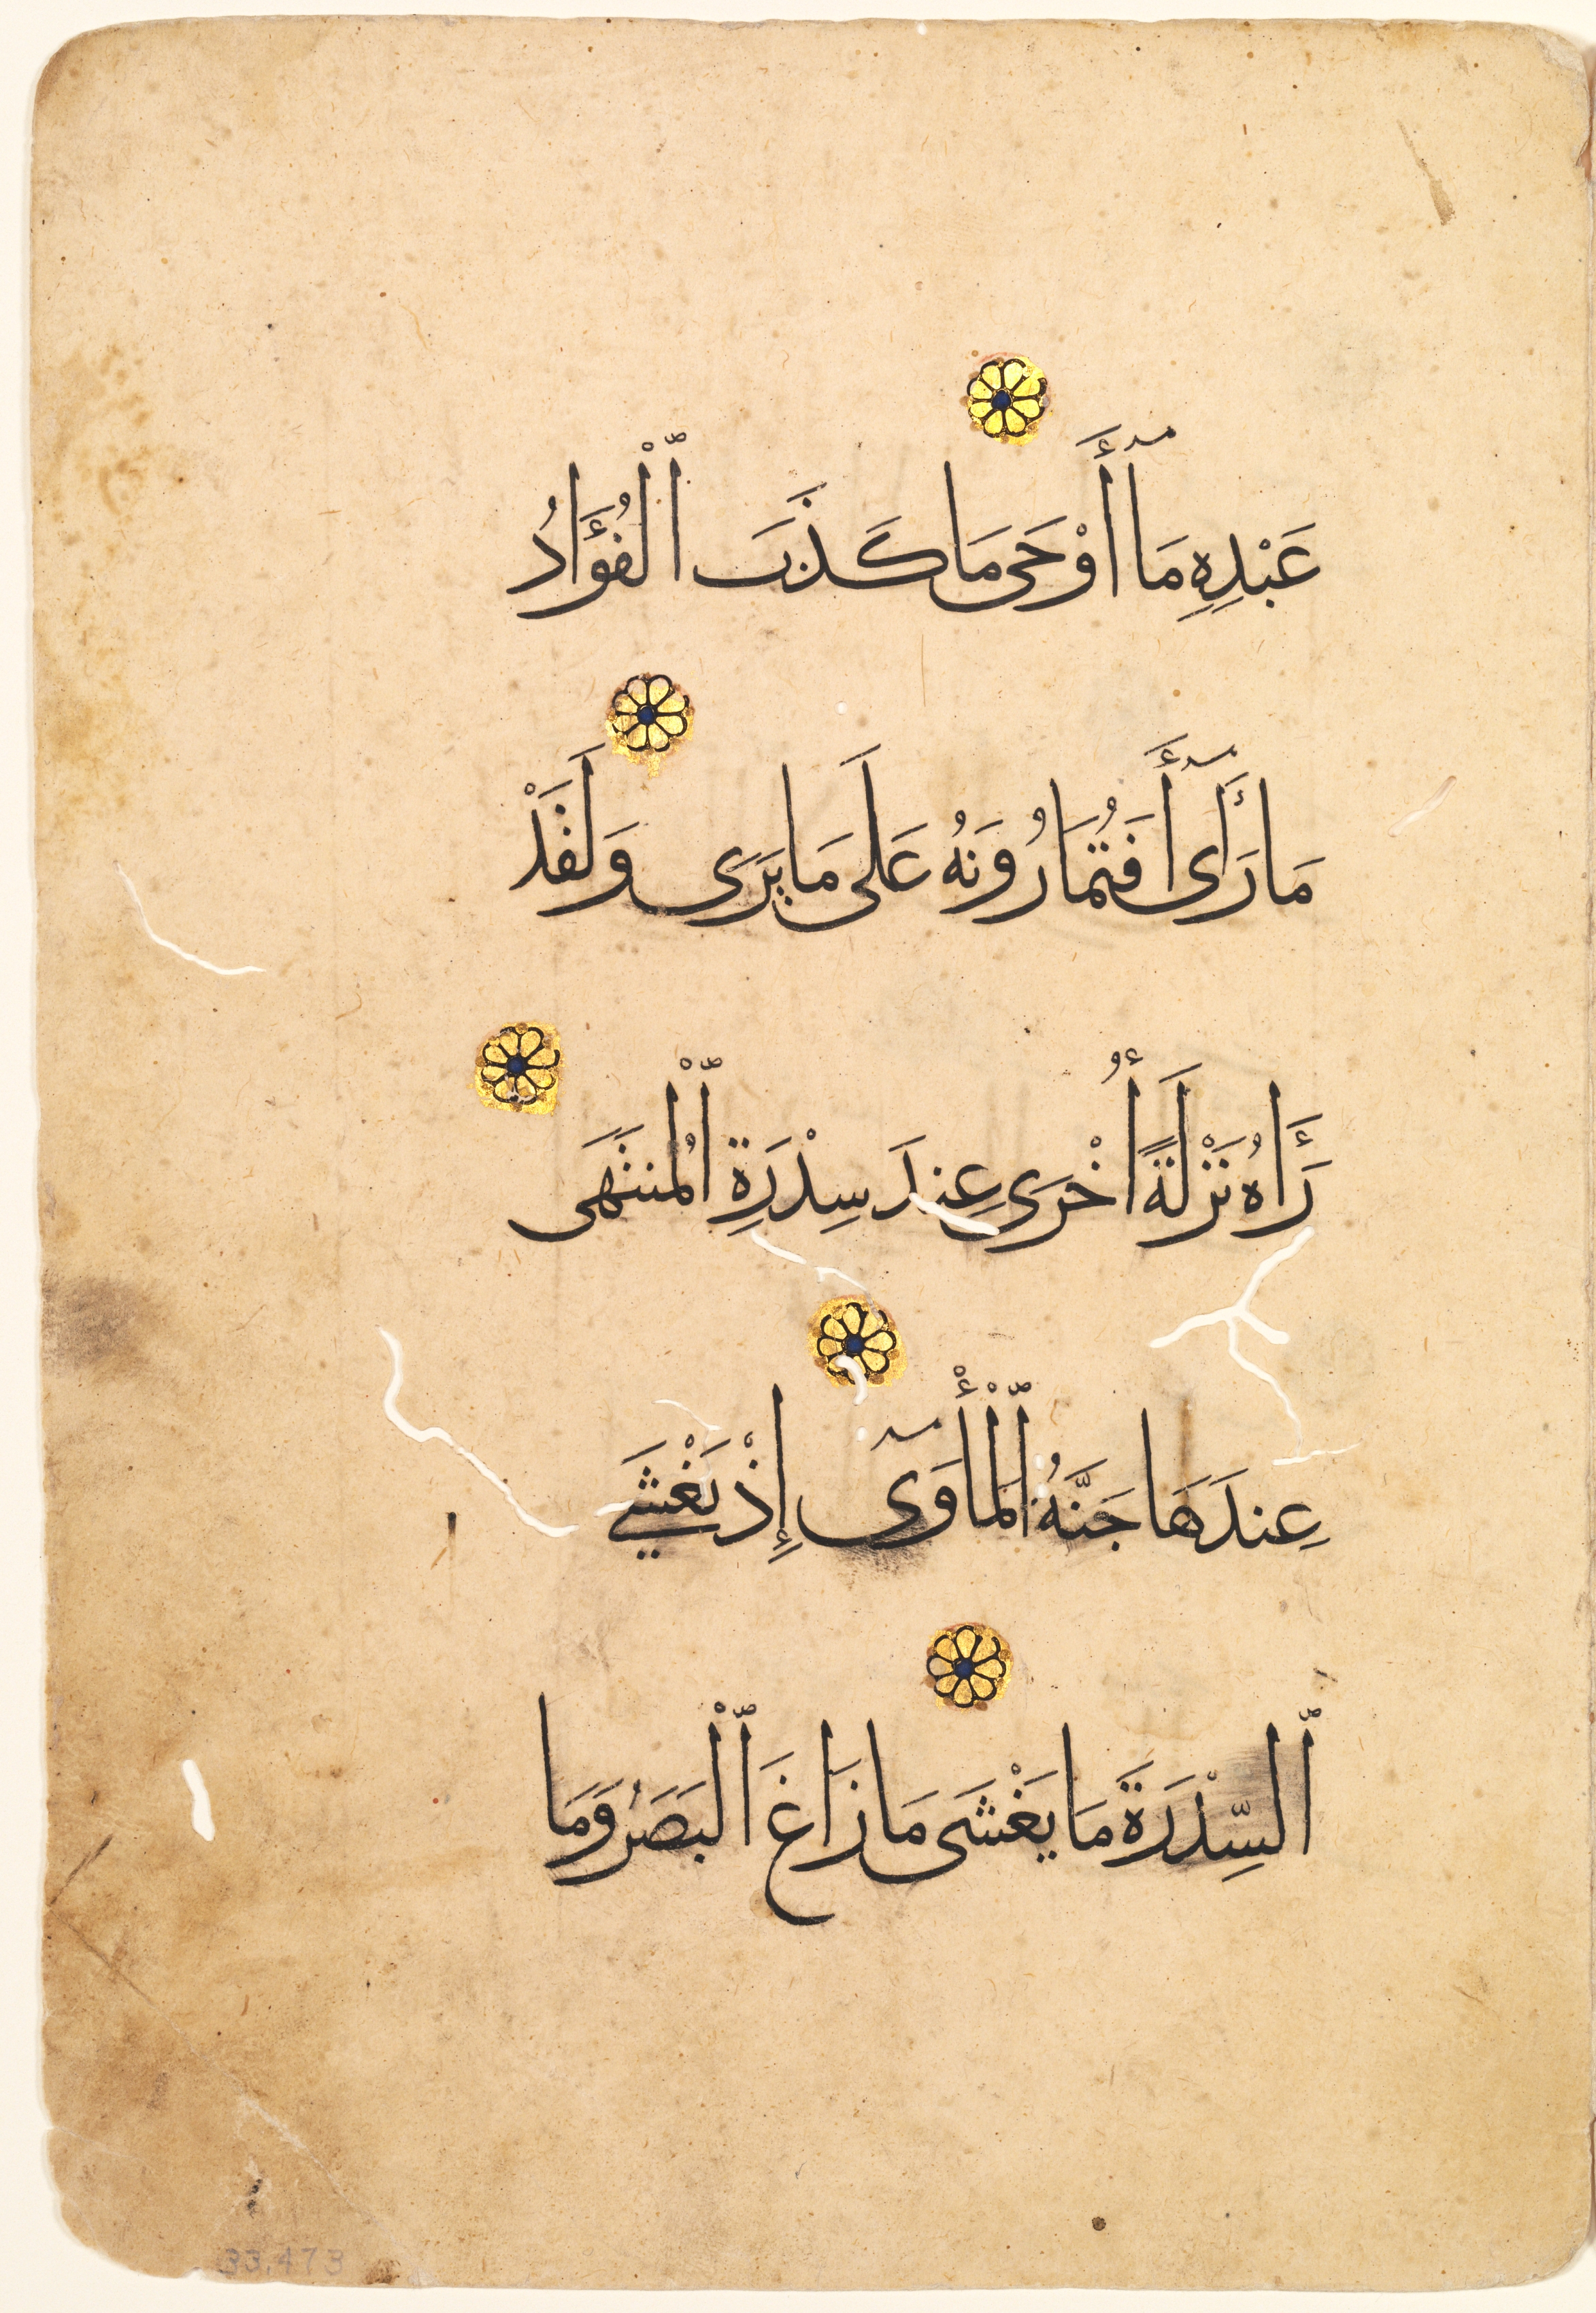 عَبْدِهِ مَآ أَوْحَى مَا كَذَبَ ٱلْفُؤَادُ
مَا رَأَىٓ أَفَتُمَارُونَهُ عَلَى مَا يَرَى وَلَقَدْ
رَءَاهُ نَزْلَةً أُخْرَى عِندَ سِدْرَةِ ٱلْمُنتَهَى
عِندَهَا جَنَّةُ ٱلْمَأْوَىٓ إِذْ يَغْشَى
ٱلسِّدْرَةَ مَا يَغْشَى مَا زَاغَ ٱلْبَصَرُ وَمَا
33.473